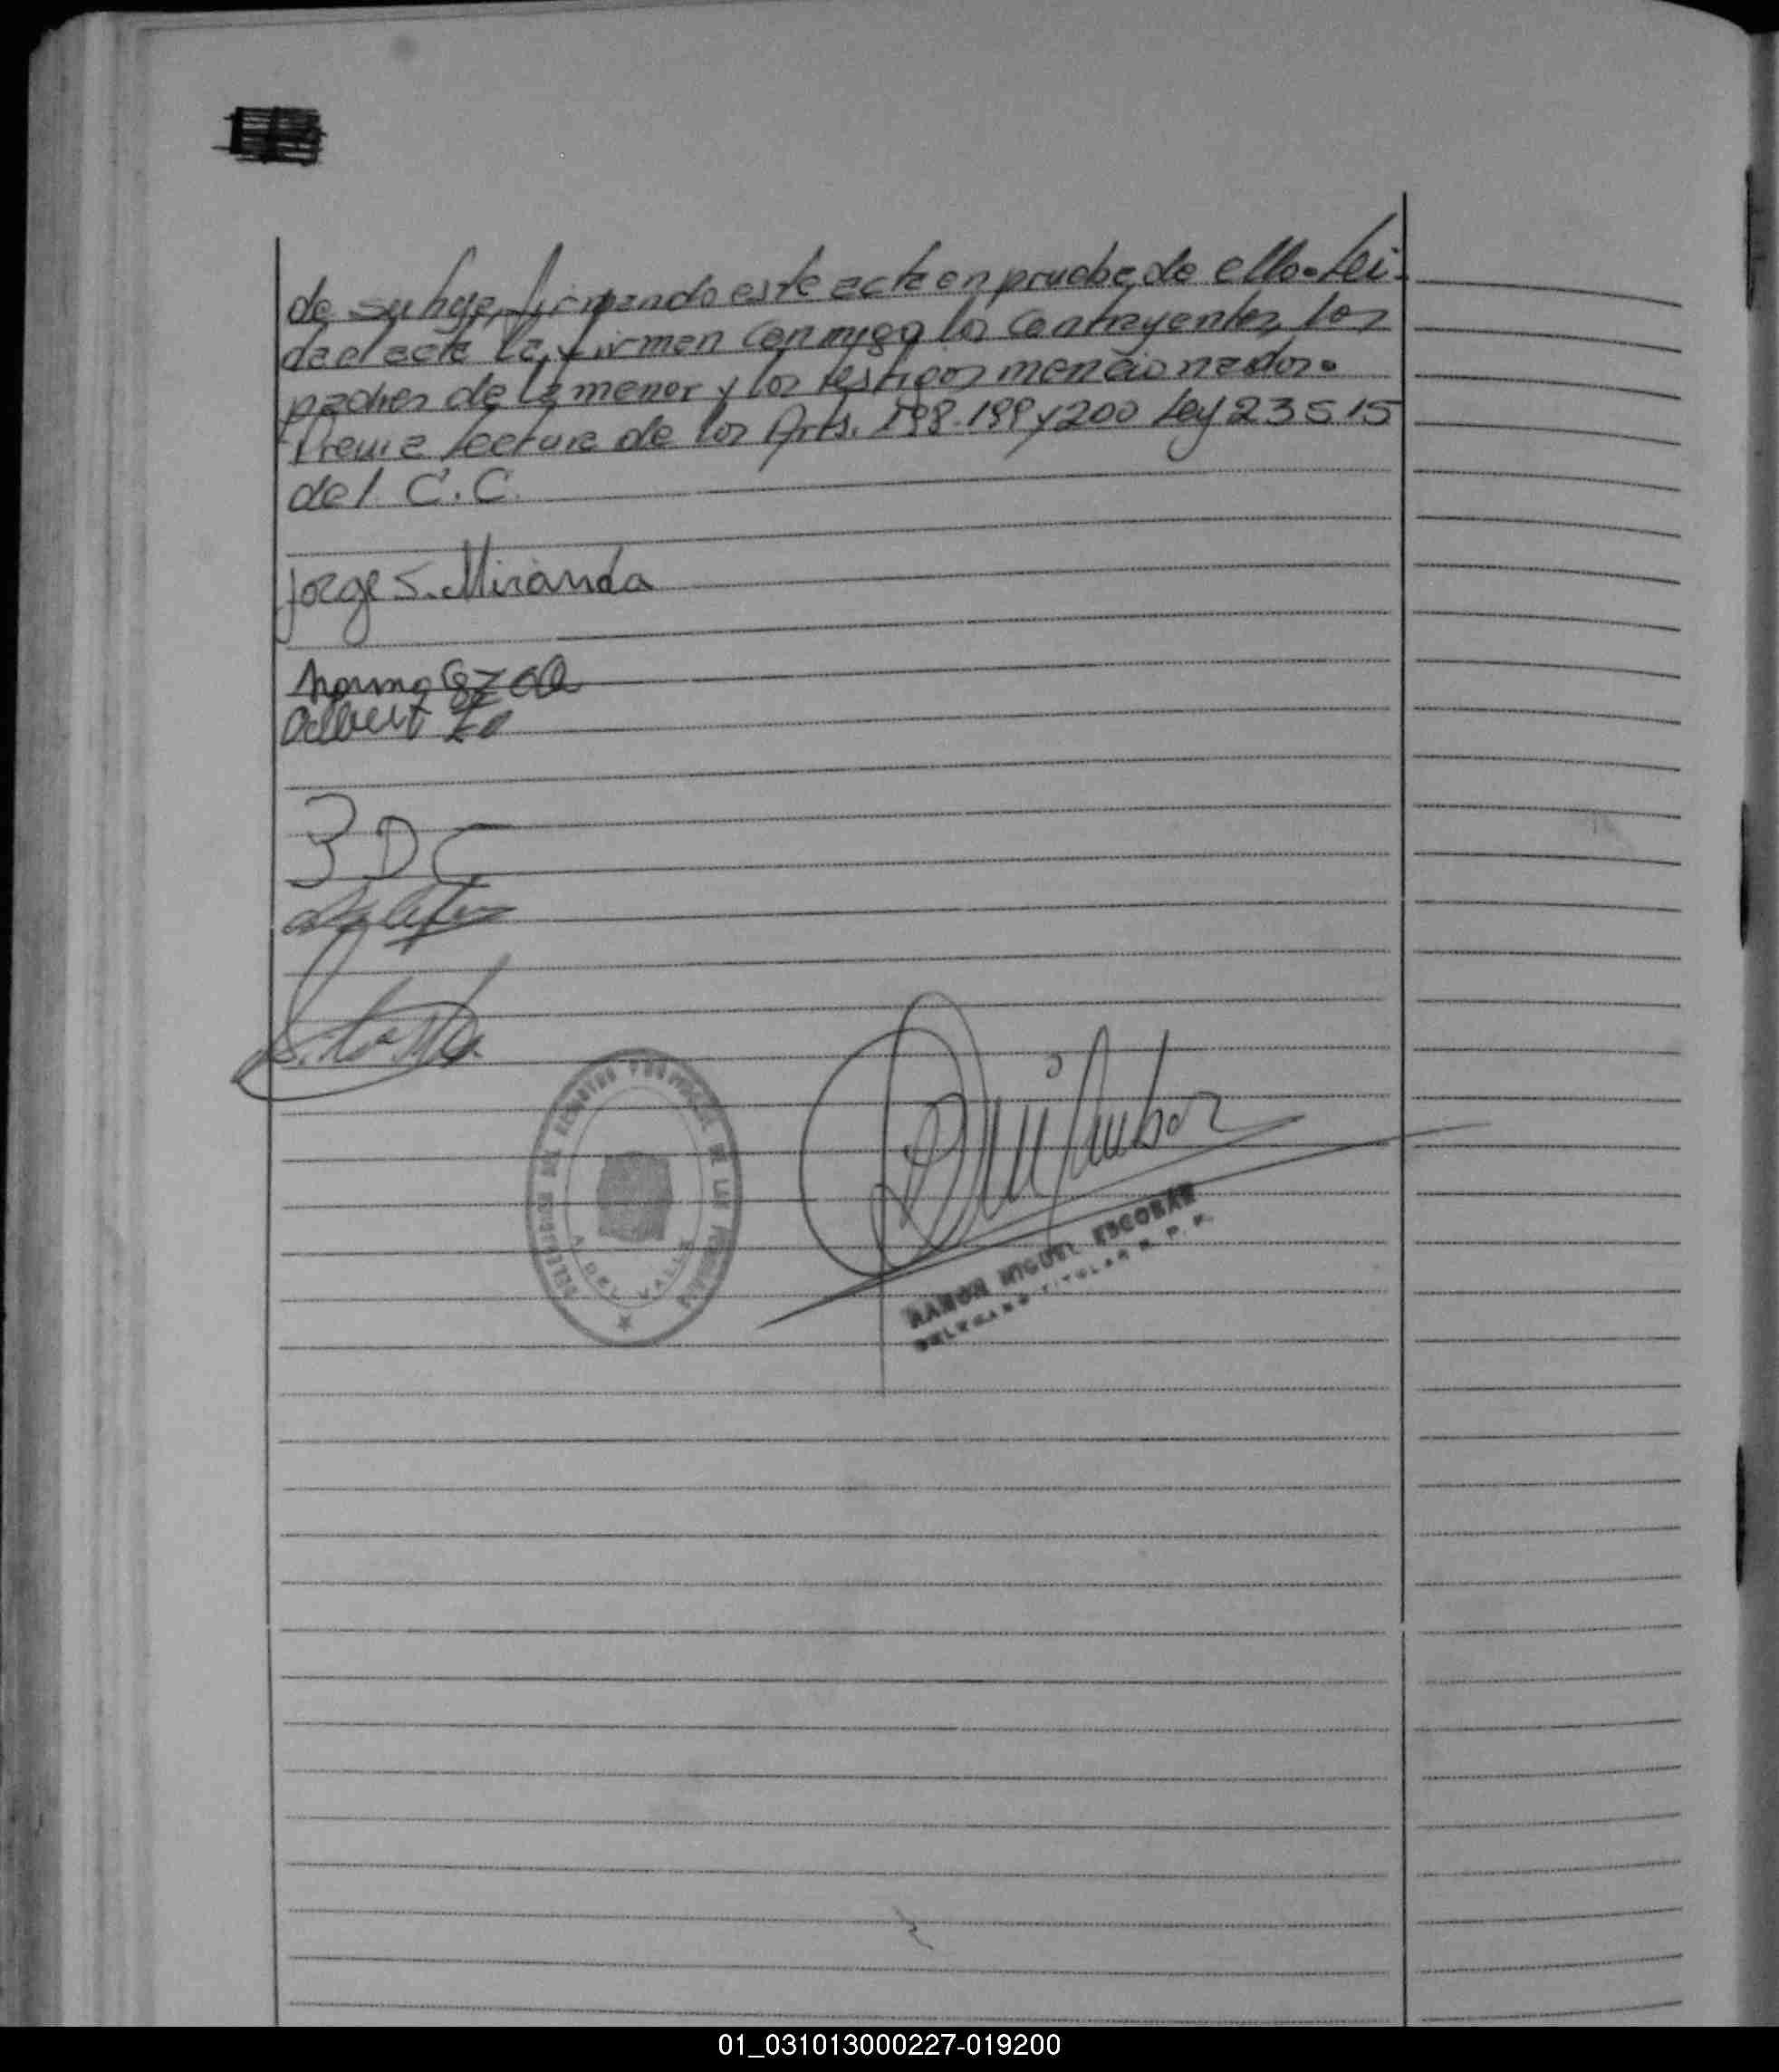 de su hija, firmando este acta en prueba de ello. Lei-
da el acta la, firman conmigo los contrayentes, los
padres de la menor y los testigos mencionados.
Previa lectura de los Arts. 198-199 y 200 Ley 23515
del C.C.
Jorge S. Miranda
Norma
Albert
DELEGACION DEL REGISTRO PROVINCIAL DE LAS PERSONAS
DEL VALLE
RAMON MIGUEL ESCOBAR
DELEGADO TITULAR R. P. P.
01_031013000227-019200